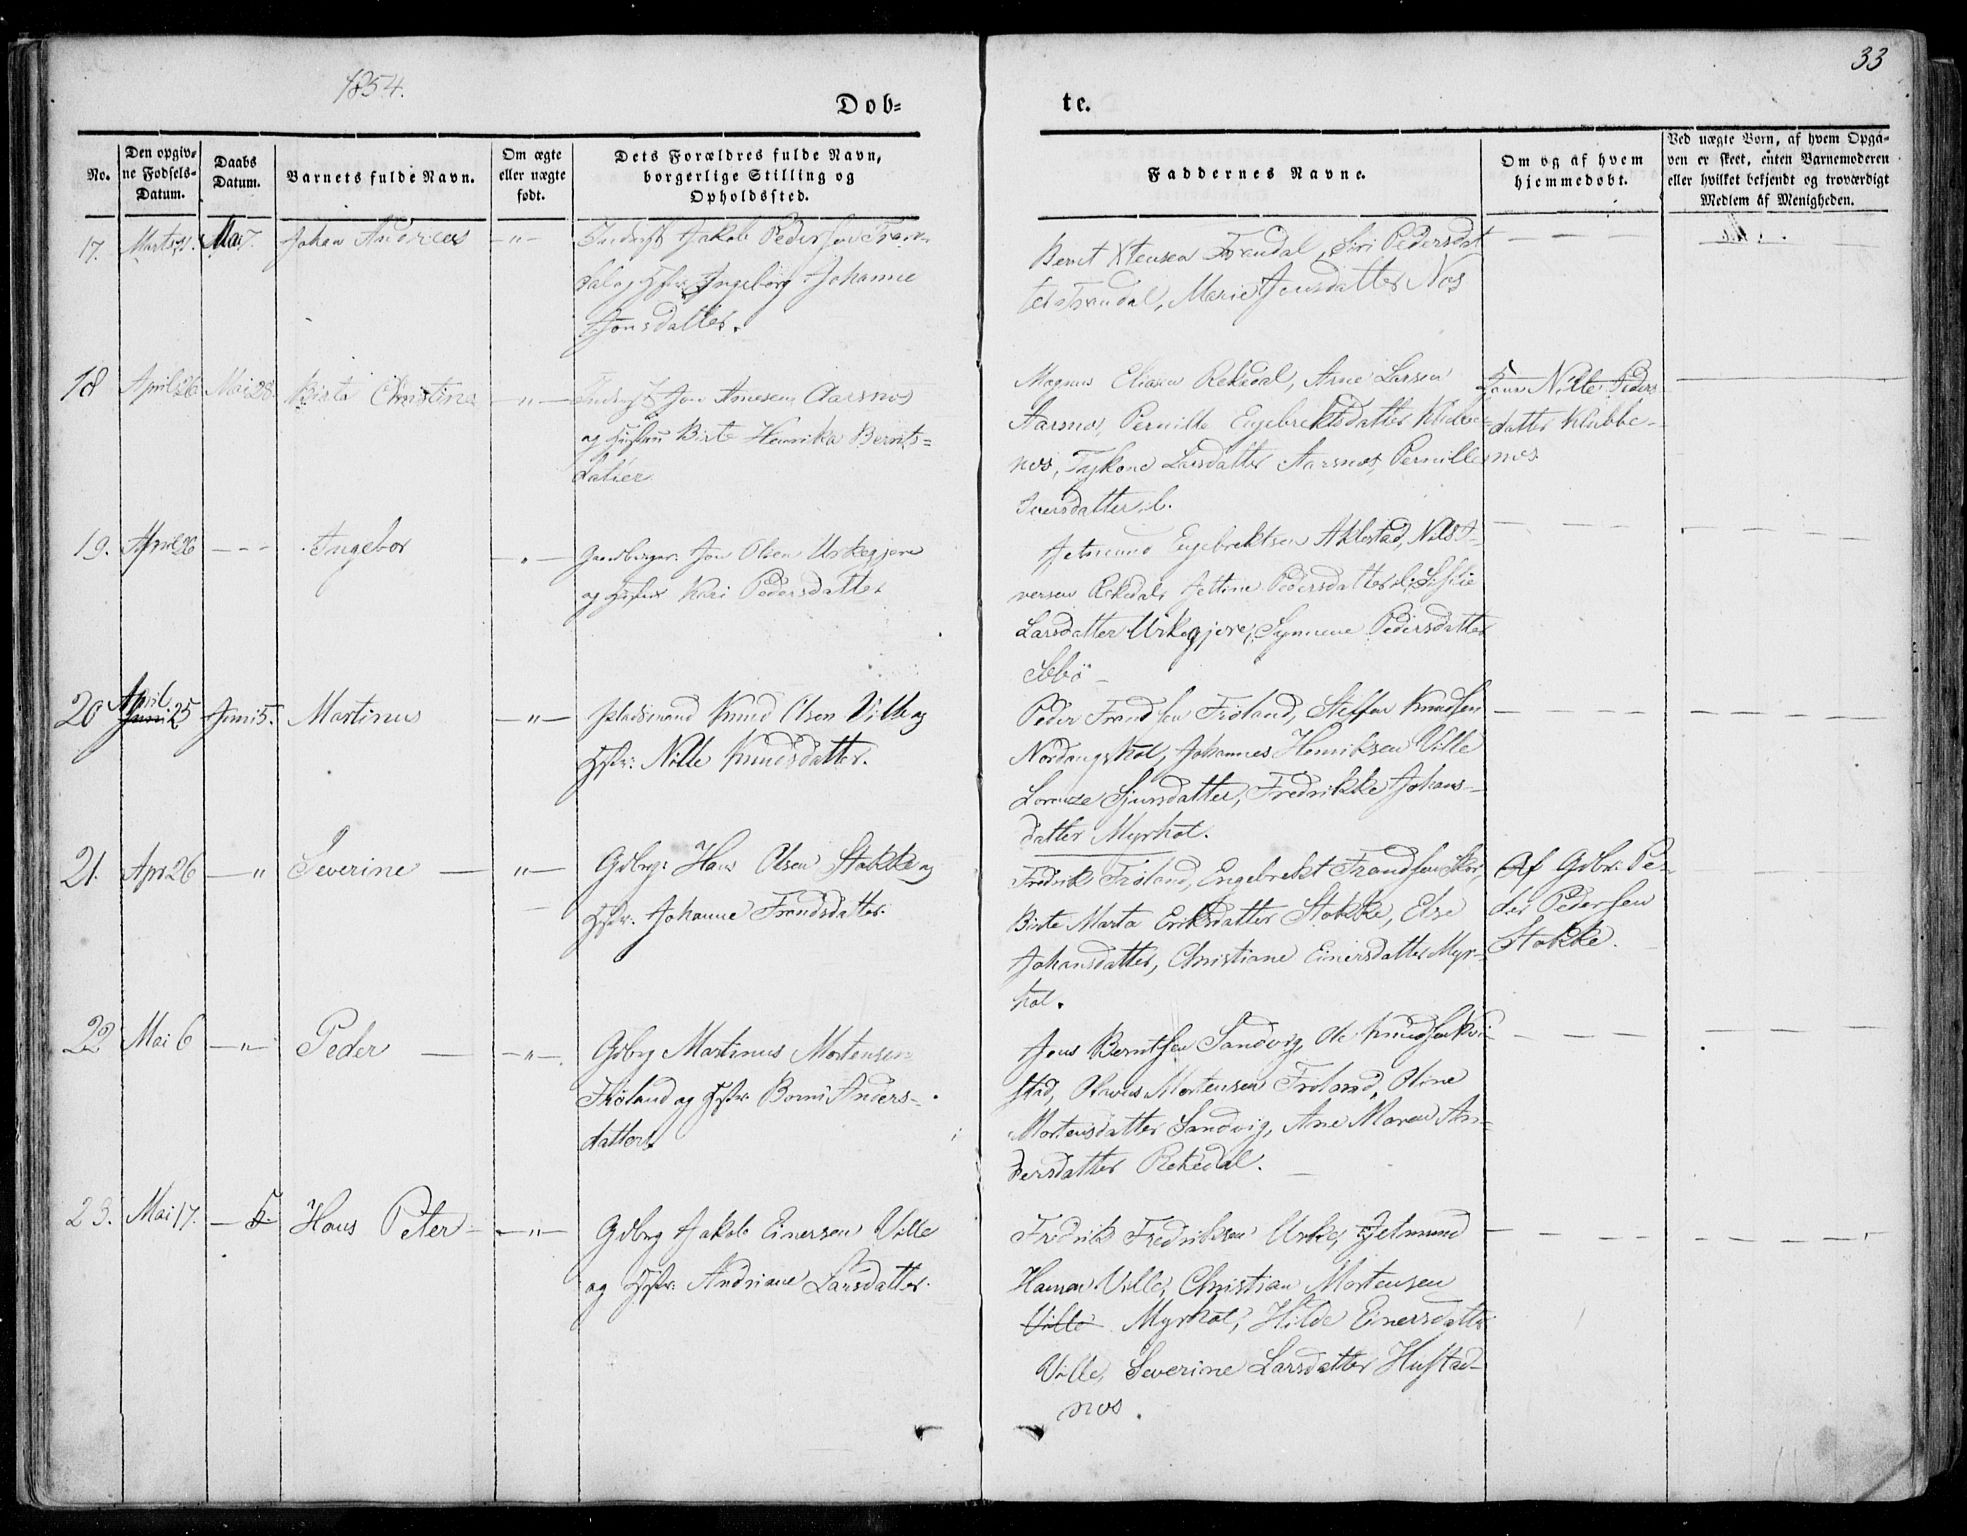 1854.
33
Døb=
te.
No.
Den opgiv=
ne Fødsels=
Datum.
Daabs
Datum.
Barnets fulde Navn.
Om ægte
eller uægte
født.
Dets Forældres fulde Navn,
borgerlige Stilling og
Opholdssted.
Faddernes Navne.
Om og af hvem
hjemmedøbt.
Ved uægte Børn, af hvem Opga=
ven er skeet, enten Barnemoderen
eller hvilket bekjendt og troværdigt
Medlem af Menigheden.
17. Marts Mai 7. Johan Andreas — " — Indrst Jakob Pedersen Tran
dal og Hstr. Ingeborg Johanne
Jonsdatter.
Bernt Xtensen Trandal, Siri Pedersdat
ter Trandal, Marie Jonsdatter Nos
18 April 26 Mai 28 Birta Christina — " — Indrst Jon Arnesen Aarsnos
og Hustru Birte Henrika Bernts=
datter
Magnus Eliasen Rekedal, Arne Larsen
Aarsnos, Pernille Engebrektsdatter Klubbe=
nos, Larsdatter Aarsnos, Pernille
Iversdatter ib.
Nille Peders
datter Klubbe=
nos
19. April 26 — — — Ingebor — " — Gaardbruger Jon Olsen Urkegjere
og Hustru Kari Pedersdatter
Jetmund Engebrektsen Aklestad, Nils I=
versen Rekedal, Jettine Pedersdatter ib,
Larsdatter Urkegjere, Synneve Pedersdatter
Sebö —
20 April Juni 25 Juni 5. Martinus — " — Pladsmand Knud Olsen Ville og
Hstr: Nille Knudsdatter.
Peder Trandsen Frøland, Steffen Knudsen
Nordangshol, Johannes Henriksen Ville
Lorentze Sjursdatter, Fredrikke Johans=
datter Myrhol.
21. Apr 26 — " Severine — " — Gdbrgr Hans Olsen Stokke og
Hstr. Johanne Frandsdatter.
Fredrik Frøland, Engebrekt Frandsen Skor,
Birte Marta Eriksdatter Stokke, Else
Johansdatter, Christiane Einersdatter Myr=
hol.
Af Gdbr: Pe=
der Pedersen
Stokke.
22 Mai 6 — " — Peder — — " — Gdbrg Martinus Mortensen
Frøland og Hstr. Anders=
datter
Jens Berntsen Sandvig, Ole Knudsen Kvi=
stad, Mortensen Frøland, Oline
Mortensdatter Sandvig, Ane Maren An=
dersdatter Rekedal.
23. Mai 17. — Hans Peter — — " — Gdbrg Jakob Einersen Ville
og Hstr: Andriane Larsdatter.
Fredrik Fredriksen Urke, Jetmund
Hansen Ville, Christian Mortensen
Ville Myrhol, Hilde Einersdatter
Ville, Severine Larsdatter Hustad=
nos.